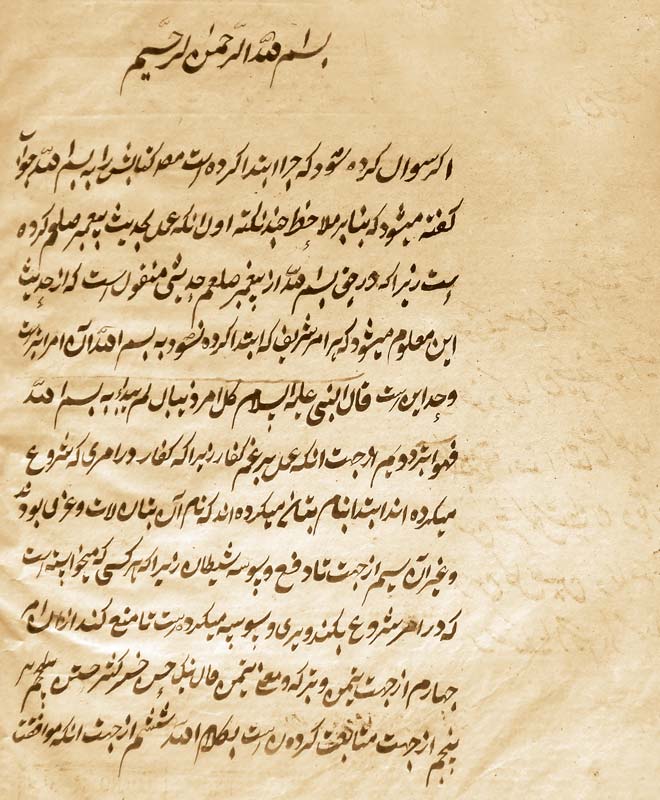 بسم الله الرحمن الرحیم
اکر سوال کرده شود که چرا ابتدا کرده است مص کتابش را به بسم الله جواب
کفته میشود که بنا بر ملاحظه چند نکته اول انکه عمل بحدیث پیغمبر صلعم کرده
است زیرا که در حق بسم الله از پیغمبر صلعم حدیثی منقول است که از حدیث
این معلوم میشود که هر امر شریف که ابتدا کرده نشود به بسم الله آن امر ابتر است
و حدیث این است قال النبی علیه السلام کل امر ذیبال لم یبدا به بسم الله
فهو ابتر دویم از جهت انکه عمل بر رغم کفار زیرا که کفار در امری که شروع
میکرده اند ابتدا بنام بتان میکرده اند که نام آن بتان لات و عزی بود
و غیر آن سیم از جهت دفع وسوسه شیطان زیرا که هر کسی که میخواسته است
که در امر شروع بکند وی وسوسه میکرده است تا منع کند از ان امر
چهارم از جهت تیمن و تبرک و معنی تیمن فال نیک
پنجم از جهت متابعت کردن است بکلام الله ششم از جهت انکه موافقت